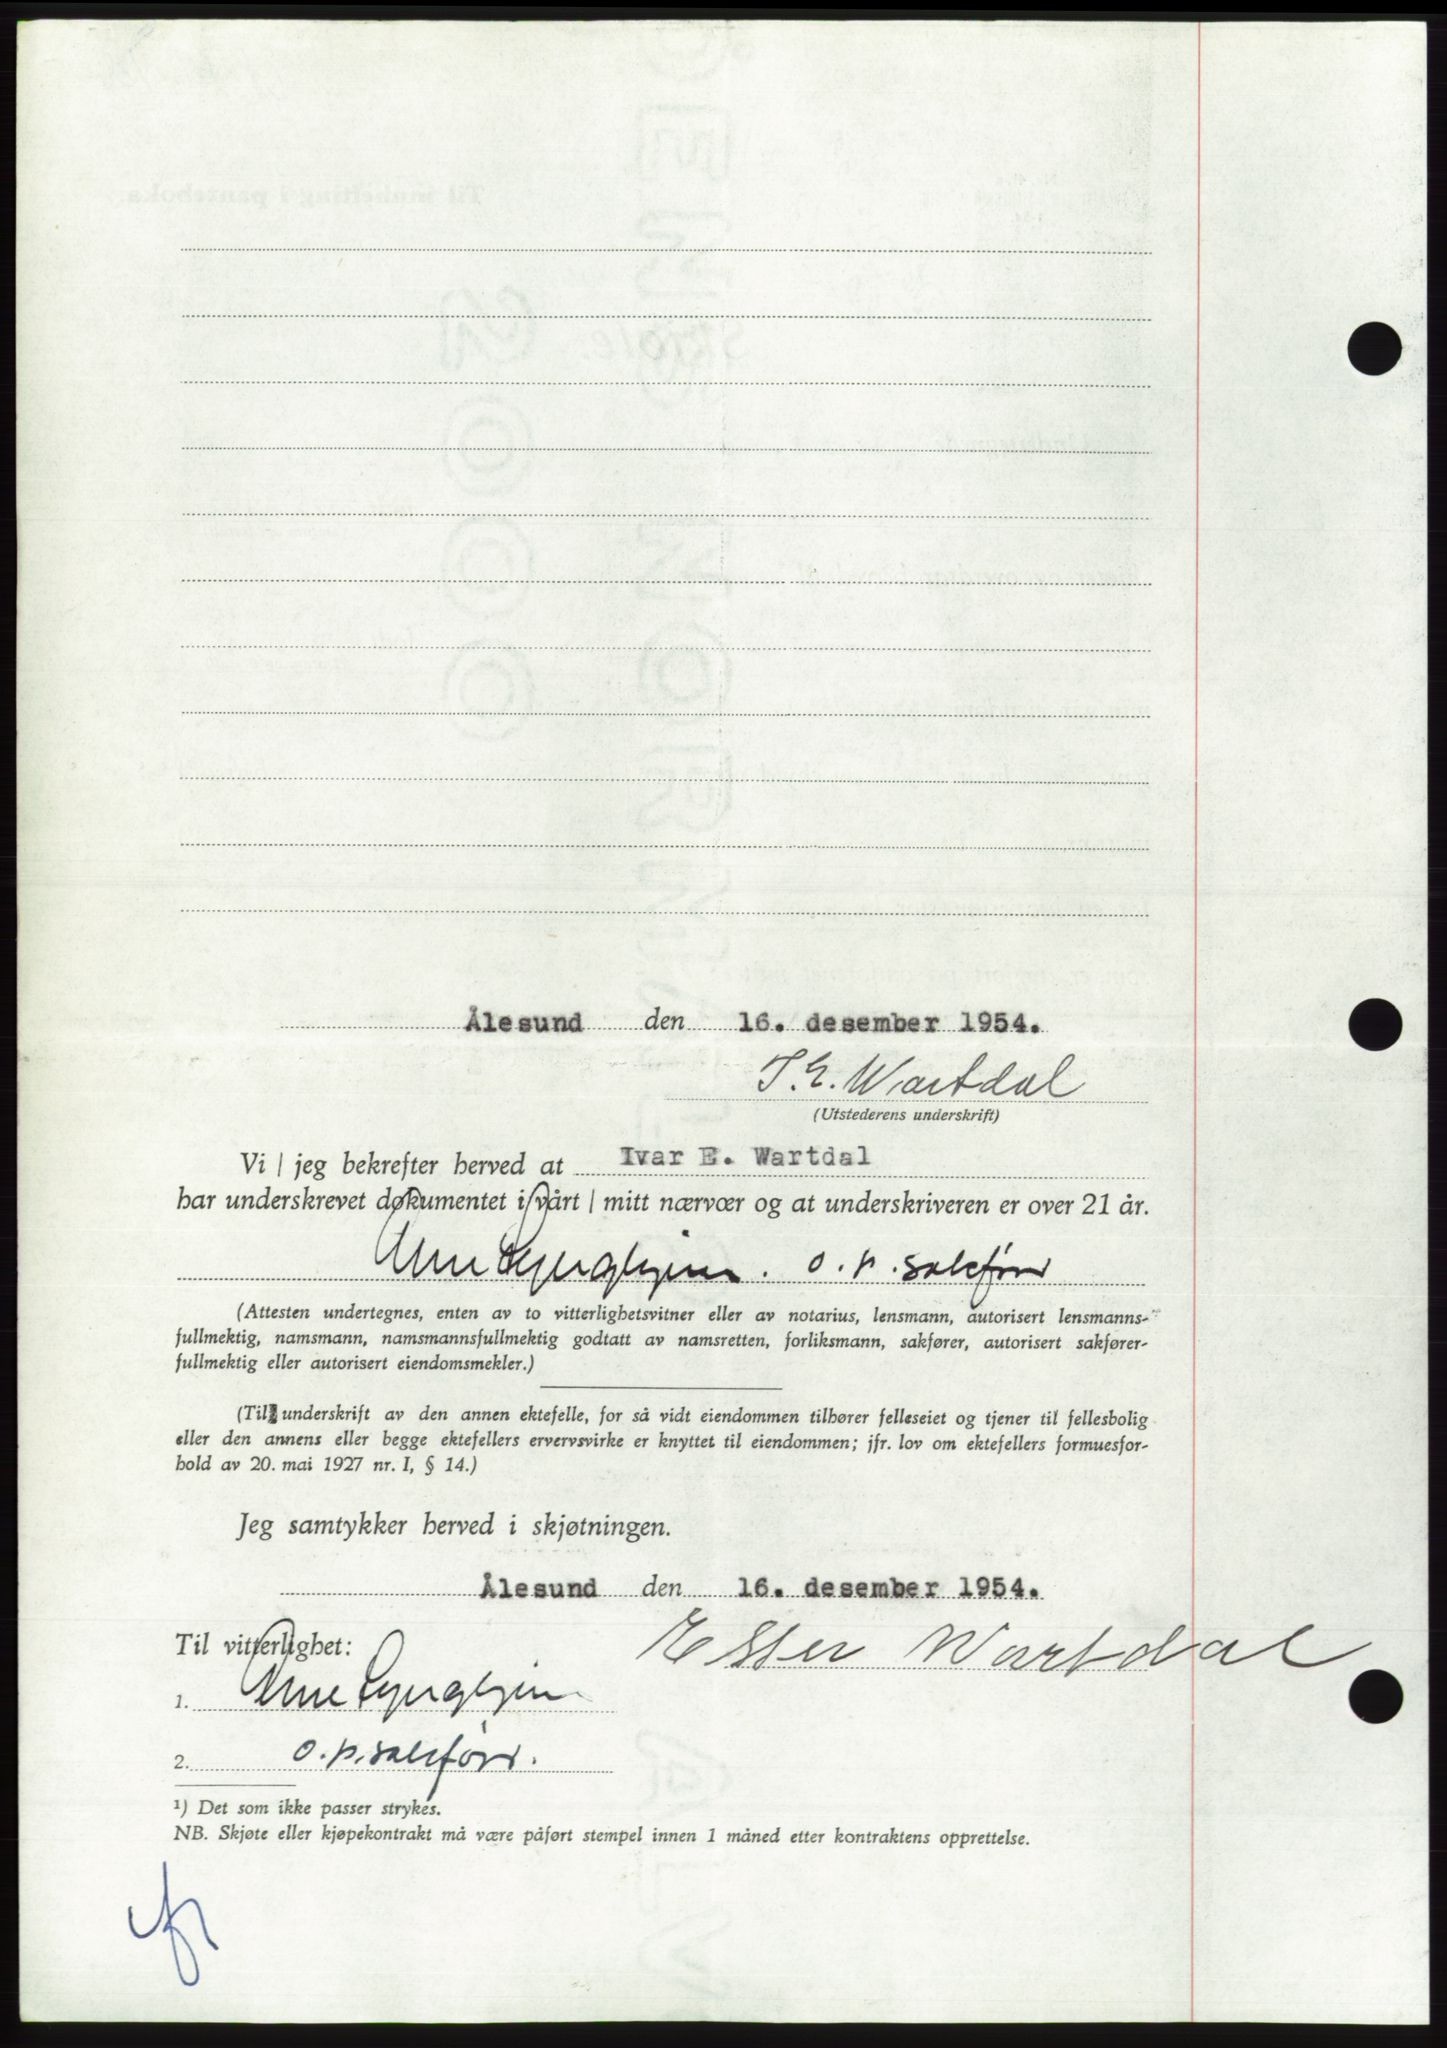 Ålesund den 16. desember 1954.
I. E. Wartdal
(Utstederens underskrift)
Vi / jeg bekrefter herved at Ivar E. Wartdal
har underskrevet dokumentet i vårt / mitt nærvær og at underskriveren er over 21 år.
o.r. sakfører
(Attesten undertegnes, enten av to vitterlighetsvitner eller av notarius, lensmann, autorisert lensmanns-
fullmektig, namsmann, namsmannsfullmektig godtatt av namsretten, forliksmann, sakfører, autorisert sakfører-
fullmektig eller autorisert eiendomsmekler.)
(Til underskrift av den annen ektefelle, for så vidt eiendommen tilhører felleseiet og tjener til fellesbolig
eller den annens eller begge ektefellers ervervsvirke er knyttet til eiendommen; jfr. lov om ektefellers formuesfor-
hold av 20. mai 1927 nr. I, § 14.)
Jeg samtykker herved i skjøtningen.
Ålesund den 16. desember 1954.
Til vitterlighet:
Ester Wartdal
1.
2. o.r. sakfører.
¹) Det som ikke passer strykes.
NB. Skjøte eller kjøpekontrakt må være påført stempel innen 1 måned etter kontraktens opprettelse.